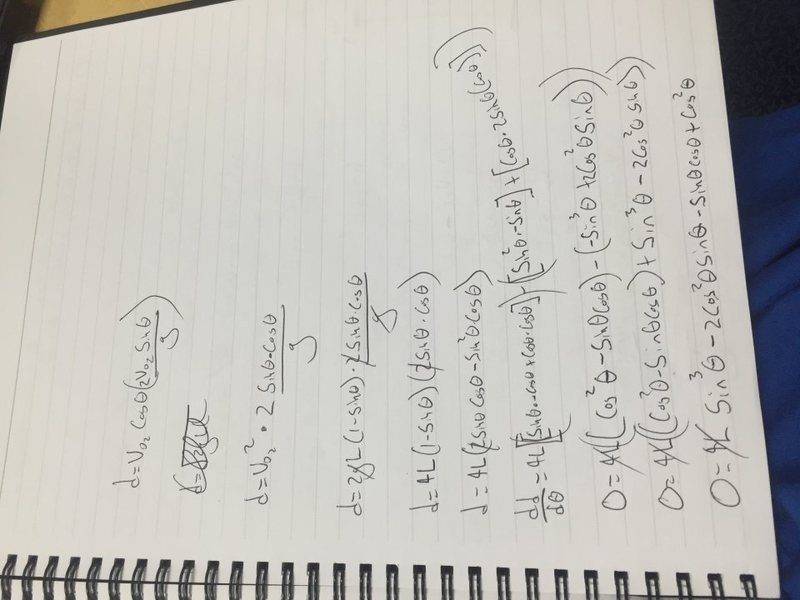 d = V₀₂ cosθ (2V₀₂ sinθ / g)
d = V₀₂² • 2 sinθ • cosθ / g
d = 2gL (1 - sinθ) · 2 sinθ · cosθ / g
d = 4L (1 - sinθ) (sinθ · cosθ)
d = 4L (sinθ cosθ - sin²θ cosθ)
dd/dθ = 4L [[sinθ · -cosθ + cosθ · cosθ] - [sin²θ · -sinθ] + [cosθ · 2 sinθ (cosθ)]))
0 = 4L ((cos²θ - sinθ cosθ) - (-sin³θ + 2cos²θ sinθ))
0 = 4L ((cos²θ - sinθ cosθ) + sin³θ - 2cos²θ sinθ))
0 = 4L sin³θ - 2cos²θ sinθ - sinθ cosθ + cos²θ